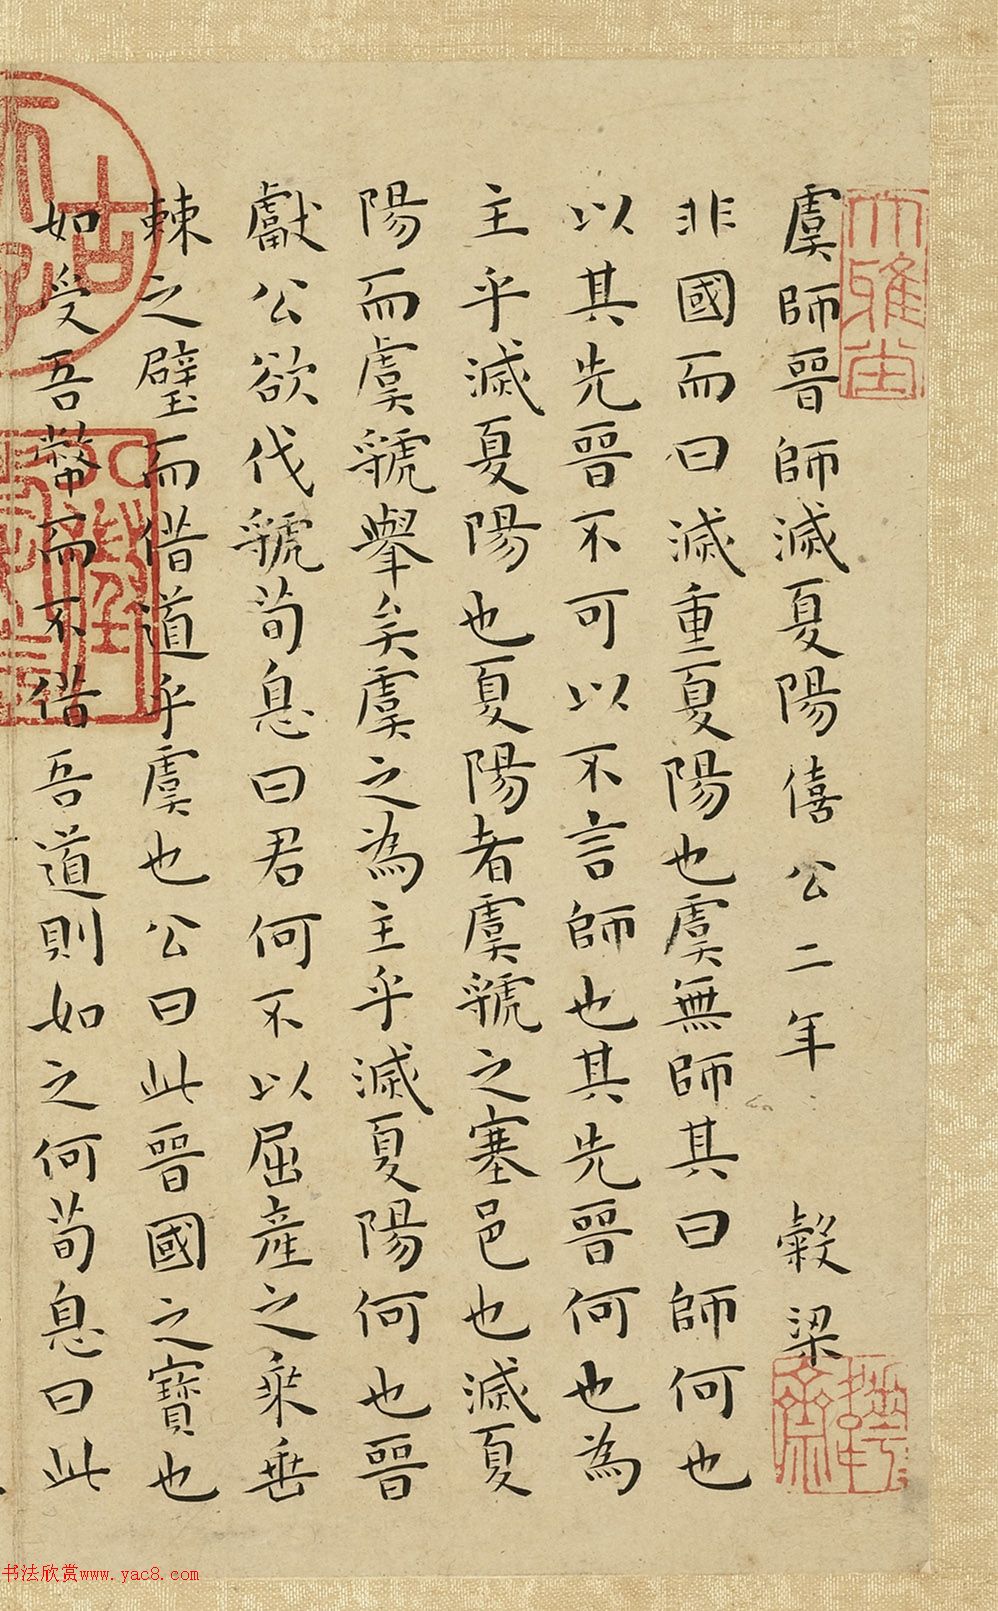 虞師晉師滅夏陽僖公二年 穀梁
非國而曰滅重夏陽也虞無師其曰師何也
以其先晉不可以不言師也其先晉何也為
主乎滅夏陽也夏陽者虞虢之塞邑也滅夏
陽而虞虢舉矣虞之為主乎滅夏陽何也晉
獻公欲伐虢荀息曰君何不以屈產之乘垂
棘之璧而借道乎虞也公曰此晉國之寶也
如受吾幣而不借吾道則如之何荀息曰此
大雅堂
书法欣赏www.yac8.com